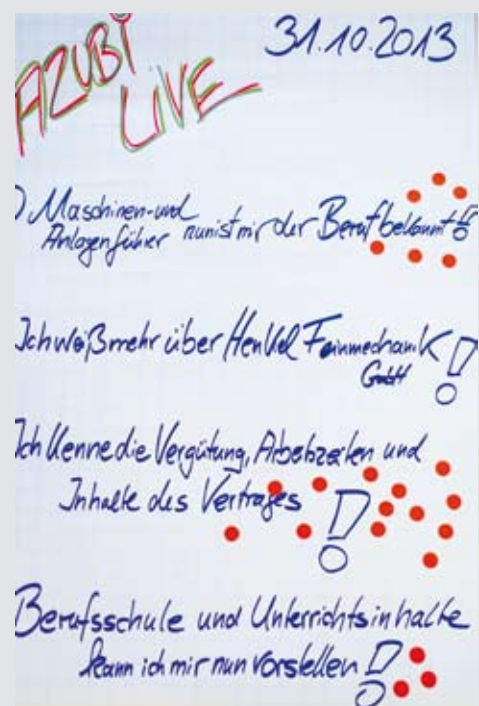 AZUBI
LIVE
31.10.2013
Maschinen- und
Anlagenführer nun ist mir der Beruf bekannt!
Ich weiß mehr über Henkel Feinmechanik
GmbH !
Ich kenne die Vergütung, Arbeitszeiten und
Inhalte des Vertrages !
Berufsschule und Unterrichtsinhalte
kann ich mir nun vorstellen !